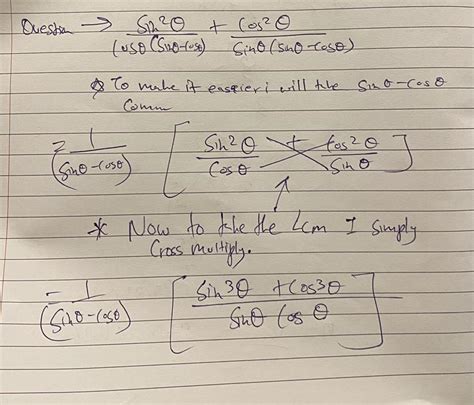 Question → Sin²θ / Cosθ (Sinθ-Cosθ) + Cos²θ / Sinθ (Sinθ-Cosθ)
* To make it easier i will the Sinθ-Cosθ
Comm
= 1/(Sinθ-Cosθ) [ Sin²θ/Cosθ + Cos²θ/Sinθ ]
* Now to take the Lcm I simply
Cross multiply.
= 1/(Sinθ-Cosθ) [ Sin³θ + Cos³θ / Sinθ Cosθ ]